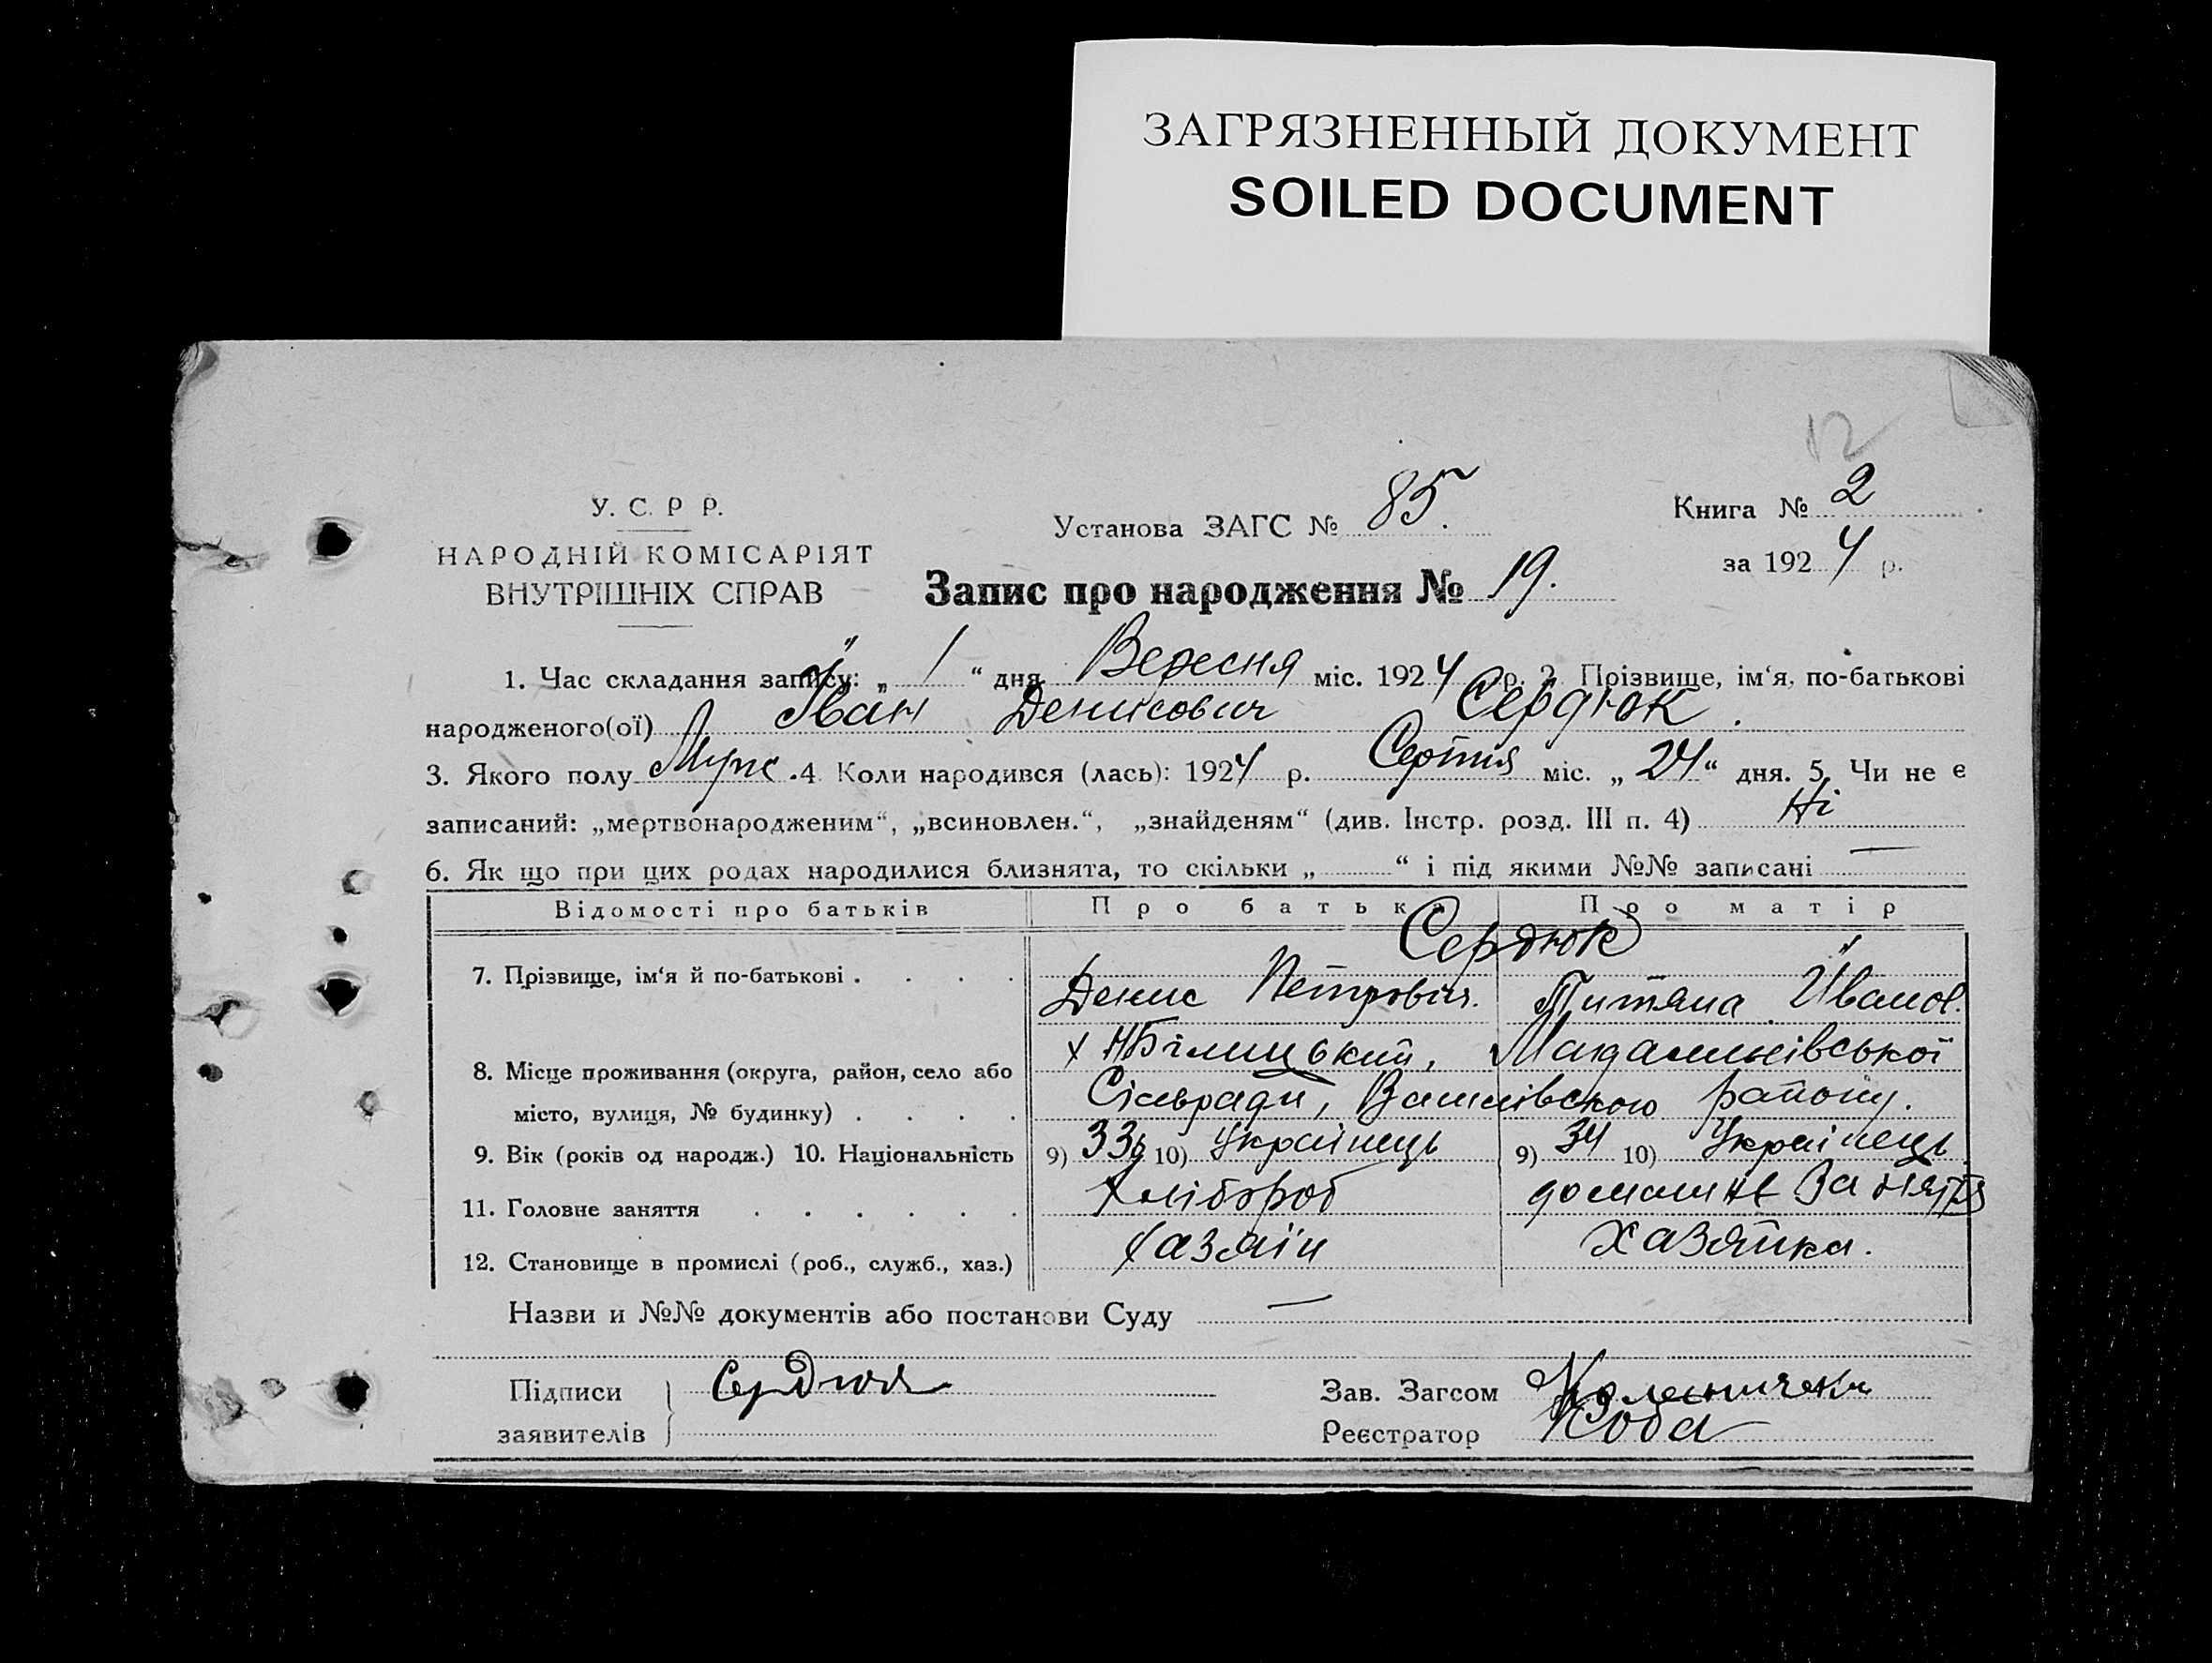 ЗАГРЯЗНЕННЫЙ ДОКУМЕНТ
SOILED DOCUMENT
12
У. С. Р Р.
НАРОДНІЙ КОМІСАРІЯТ
ВНУТРІШНІХ СПРАВ
Установа ЗАГС № 85.
Книга № 2
за 1924 р.
Запис про народження № 19.
1. Час складання запису: „ 1 “ дня Вересня міс. 1924 р. 2. Прізвище, ім‘я, по-батькові
народженого(ої) Іван Денисович Сердюк.
3. Якого полу Муж. 4 Коли народився (лась): 1924 р. Серпня міс. „ 24 “ дня. 5. Чи не є
записаний: „мертвонародженим“, „всиновлен.“, „знайденям“ (див. Інстр. розд. III п. 4) Ні
6. Як що при цих родах народилися близнята, то скільки „ “ і під якими №№ записані —
Відомості про батьків Про батька Про матір
Сердюк
7. Прізвище, ім‘я й по-батькові . . . . Денис Петрович. Титяна Іванов.
8. Місце проживання (округа, район, село або
місто, вулиця, № будинку) . . . .
району.
9. Вік (років од народж.) 10. Національність 9) 33 10) Українець 9) 34 10) Українець
11. Головне заняття . . . . . . Хлібороб домашнє Заняття
12. Становище в промислі (роб., служб., хаз.) Хазяїн Хазяйка.
Назви и №№ документів або постанови Суду —
Підписи заявителів Сердюк
Зав. Загсом
Реєстратор Коба